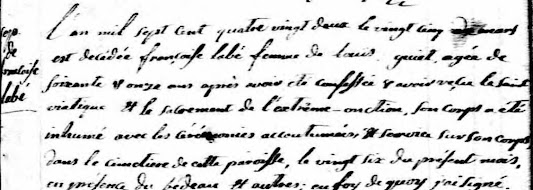 L'an mil sept cent quatre vingt deux le vingt cinq mars
est décédée françoise labé femme de louis quiet, agée de
soixante & onze ans après avoir été confessée & avoir reçu le saint
viatique & le sacrement de l'extrême-onction, son corps a été
inhumé avec les cérémonies accoutumées, & services sur son corps
dans le cimetiere de cette paroisse, le vingt six du présent mois,
en présence du bédeau & autres; en foy de quoy j'ai signé.
sep.
de
francoise
labé